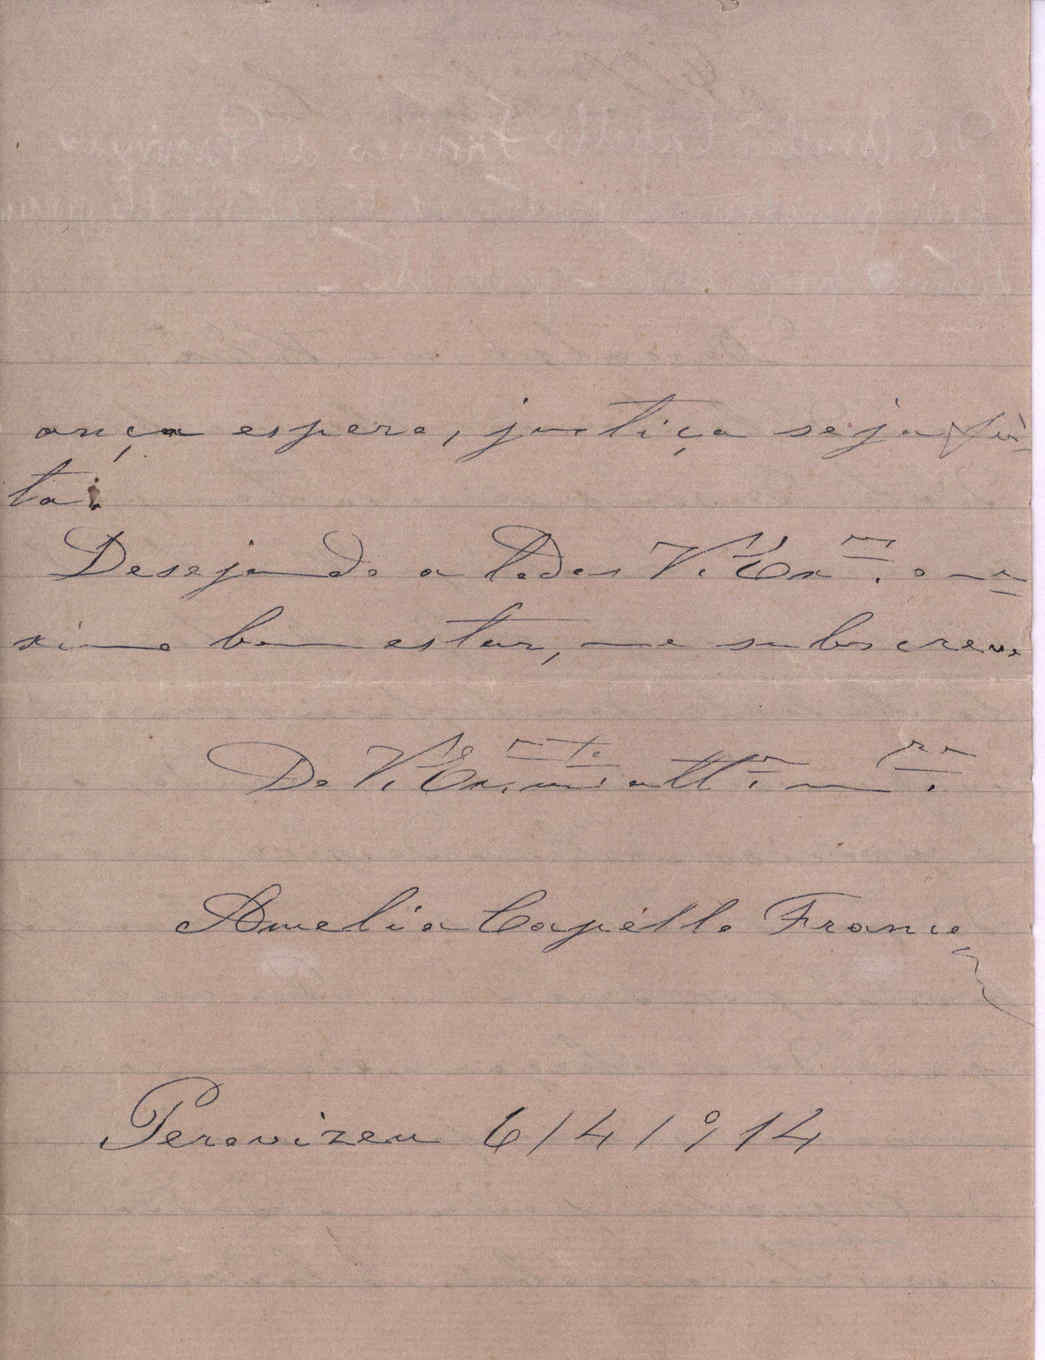 ança espera, justiça seja fei-
ta.
Desejando a todos V. Ex.ᵃˢ o ma-
ximo bem estar, me subscrevo
De V. Ex.ᵃˢ m.ᵗᵒ att.ᵃ
Amelia Capéllo Franco
Perovizeu 6/4/914